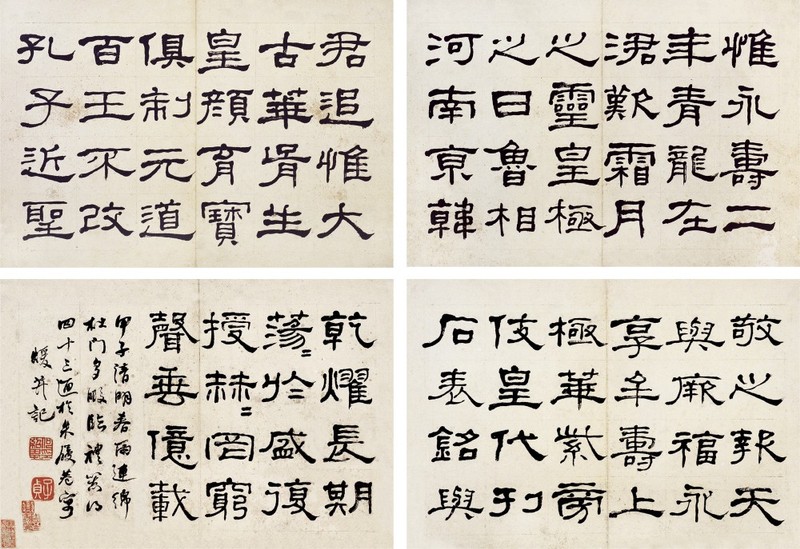 惟永壽二
年青龍在
涒歎霜月
之靈皇極
之日魯相
河南京韓
君追惟大
古華胥生
皇顏育寶
俱制元道
百王不改
孔子近聖
敬之報天
與厥福永
享牟壽上
極華紫旁
伎皇代刊
石表銘與
乾燿長期
蕩=於盛復
授赫=罔窮
聲垂億載
甲子清明春雨連綿
杜門多暇臨禮器得
四十三通於
記